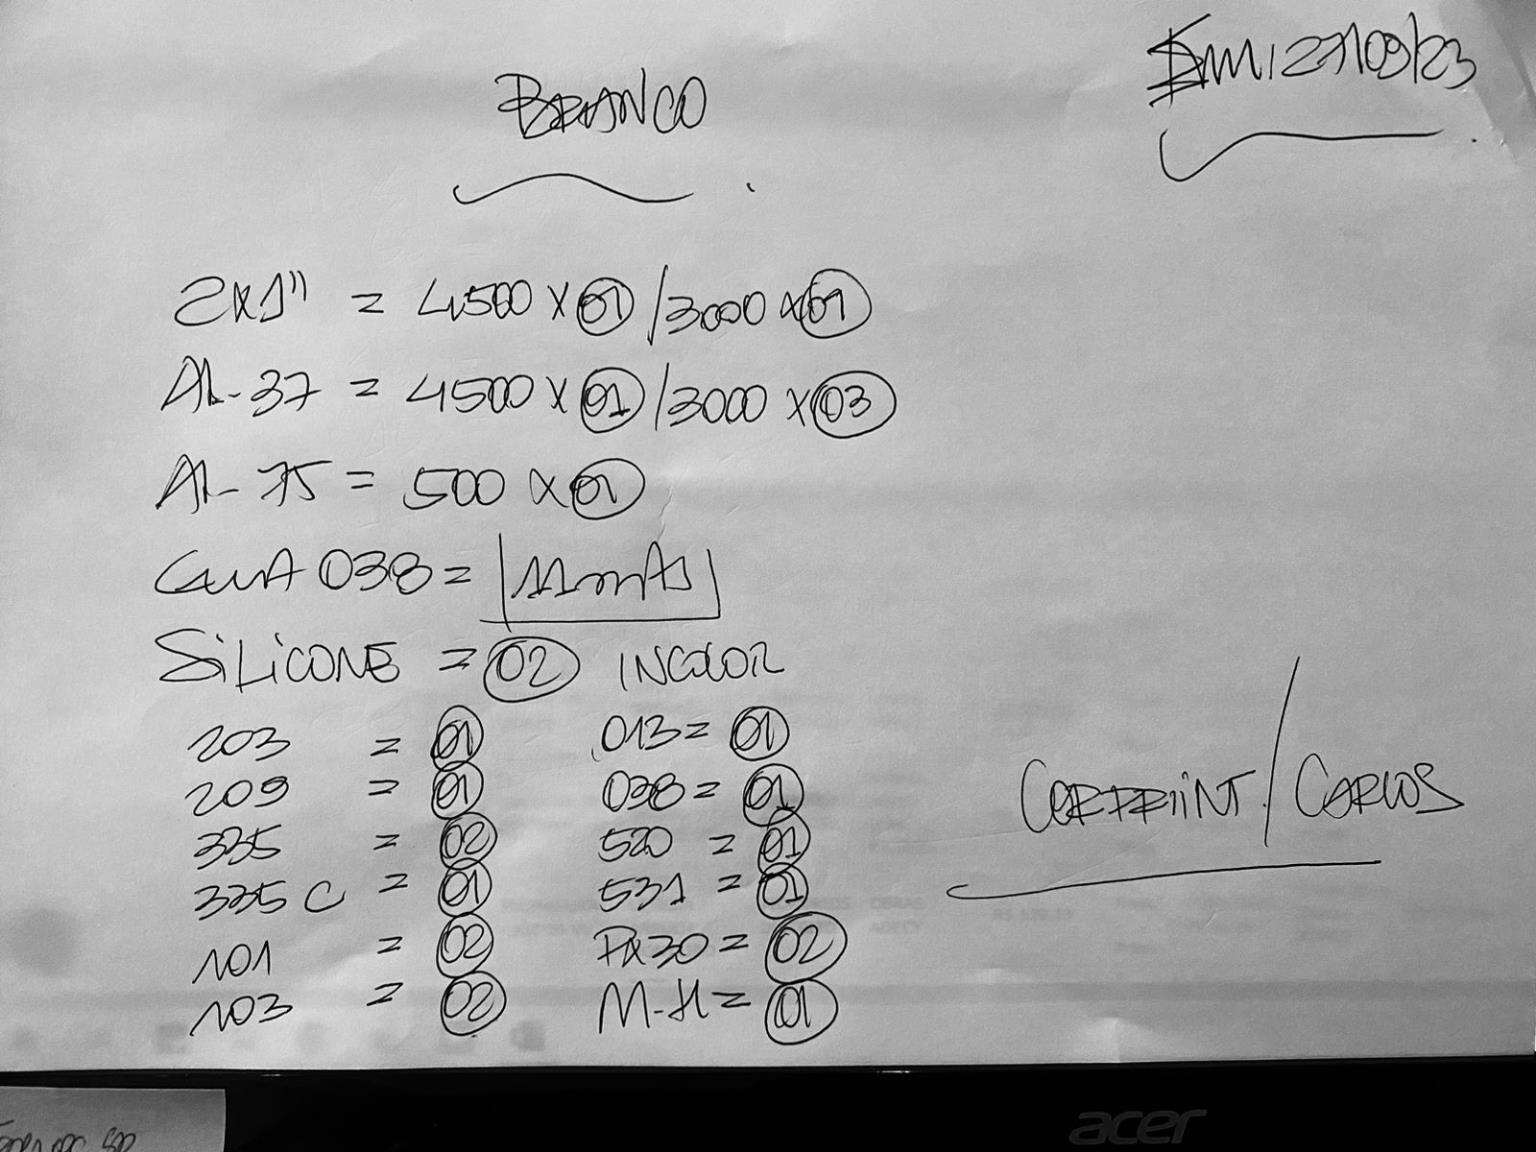 BRANCO
27/09/23
2x1" = 4500 x 01 / 3000 x 01
AL-37 = 4500 x 01 / 3000 x 03
AL-75 = 500 x 01
GUIA 038 = 11 mTS
SILICONE = 02 INCOLOR
203 = 01 013 = 01
209 = 01 038 = 01
335 = 02 520 = 01
335 C = 01 531 = 01
CORTPRINT / CARLOS
101 = 02 PX30 = 02
103 = 02 M-H = 01
acer